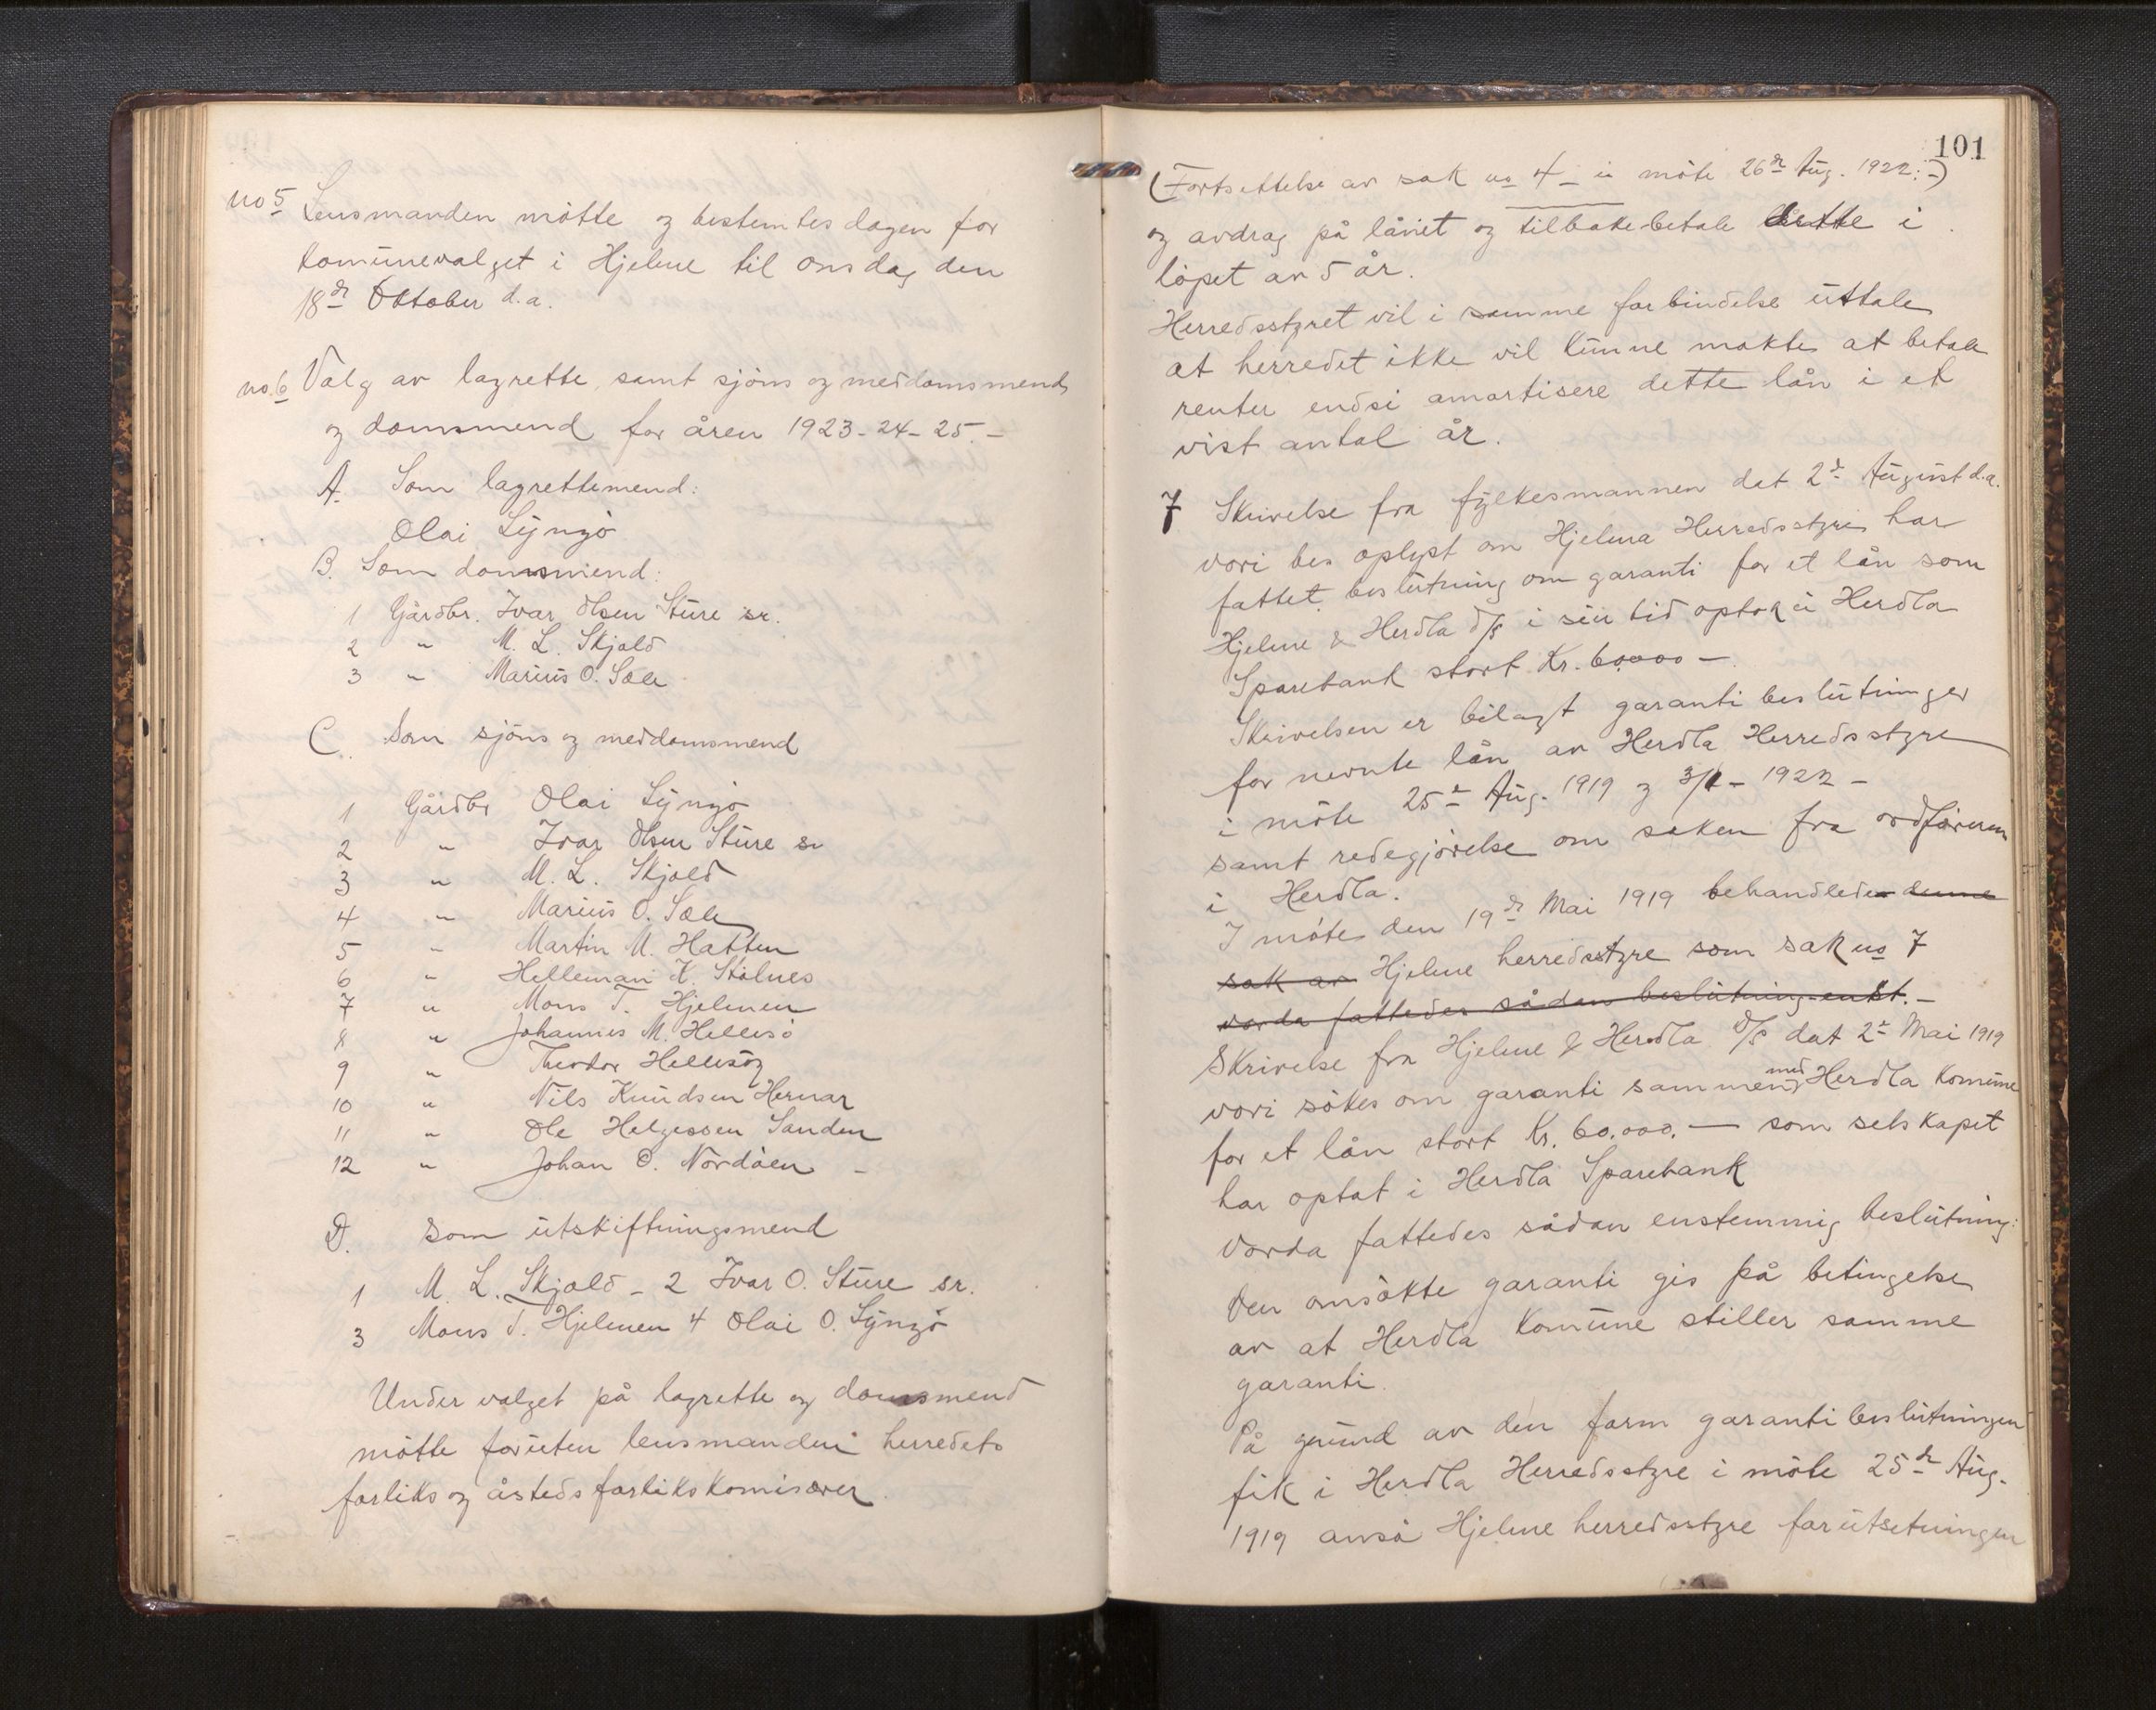 no 5 Lensmanden mötte og bestemtes dagen for
komunevalget i Hjelme til onsdag den
18de Oktober d.a.
no. 6 Valg av lagrette, samt sjöns og meddomsmend
og domsmend for åren 1923-24-25.-
A. Som lagrettemend:
Olai Lyngö
B. Som domsmend:
1 Gårdbr. Ivar Olsen Sture sr.
2 " M. L. Skjold
3 " Marius O. Sæle
C. Som sjöns og meddomsmend
1 Gårdbr Olai Lyngö
2 " Ivar Olsen Sture sr
3 " M. L. Skjold
4 " Marius O. Sæle
5 " Martin M. Hatten
6 " Helleman K. Stölnes
7 " Mons T. Hjelmen
8 " Johannes M. Hellesö
9 " Theodor Hellesöy
10 " Nils Knudsen Hernar
11 " Ole Helgessen Sanden
12 " Johan O. Nordöen -
D. som utskiftningsmend
1 M. L. Skjold - 2 Ivar O. Sture sr.
3 Mons T. Hjelmen 4 Olai O. Lyngö
Under valget på lagrette og domsmend
mötte foruten lensmanden herredets
forliks og åstedsforlikskomisærer.
101
(Fortsettelse av sak no 4 - i möte 26de Aug. 1922:-)
og avdrag på lånet og tilbake-betale dette i
löpet av 5 år.
Herredsstyret vil i samme forbindelse uttale
at herredet ikke vil kunne makte at betale
renter endsi amortisere dette lån i et
vist antal år.
7 Skrivelse fra fylkesmannen dat 2de August d.a.
vori bes oplyst om Hjelma Herredsstyre har
fattet beslutning om garanti for et lån som
Hjelme & Herdla D/S i sin tid optok i Herdla
Sparebank stort Kr. 60000 -
Skrivelsen er bilagt garanti beslutninger
for nevnte lån av Herdla Herredsstyre
i möte 25de Aug. 1919 og 3/1 - 1922 -
samt redegjörelse om saken fra ordföreren
i Herdla.
I möte den 19de Mai 1919 behandlede denne
sak av Hjelme herredsstyre som sak no 7
vorda fattedes sådan beslutning enst.-
Skrivelse fra Hjelme & Herdla D/S dat 2de Mai 1919
vori sökes om garanti sammen med Herdla Komune
for et lån stort Kr. 60.000.- som selskapet
har optat i Herdla Sparebank
Vorda fattedes sådan enstemmig beslutning:
Den omsökte garanti gis på betingelse
av at Herdla Komune stiller samme
garanti.
På grund av den form garantibeslutningen
fik i Herdla Herredsstyre i möte 25de Aug.
1919 anså Hjelme herredsstyre forutsetningen